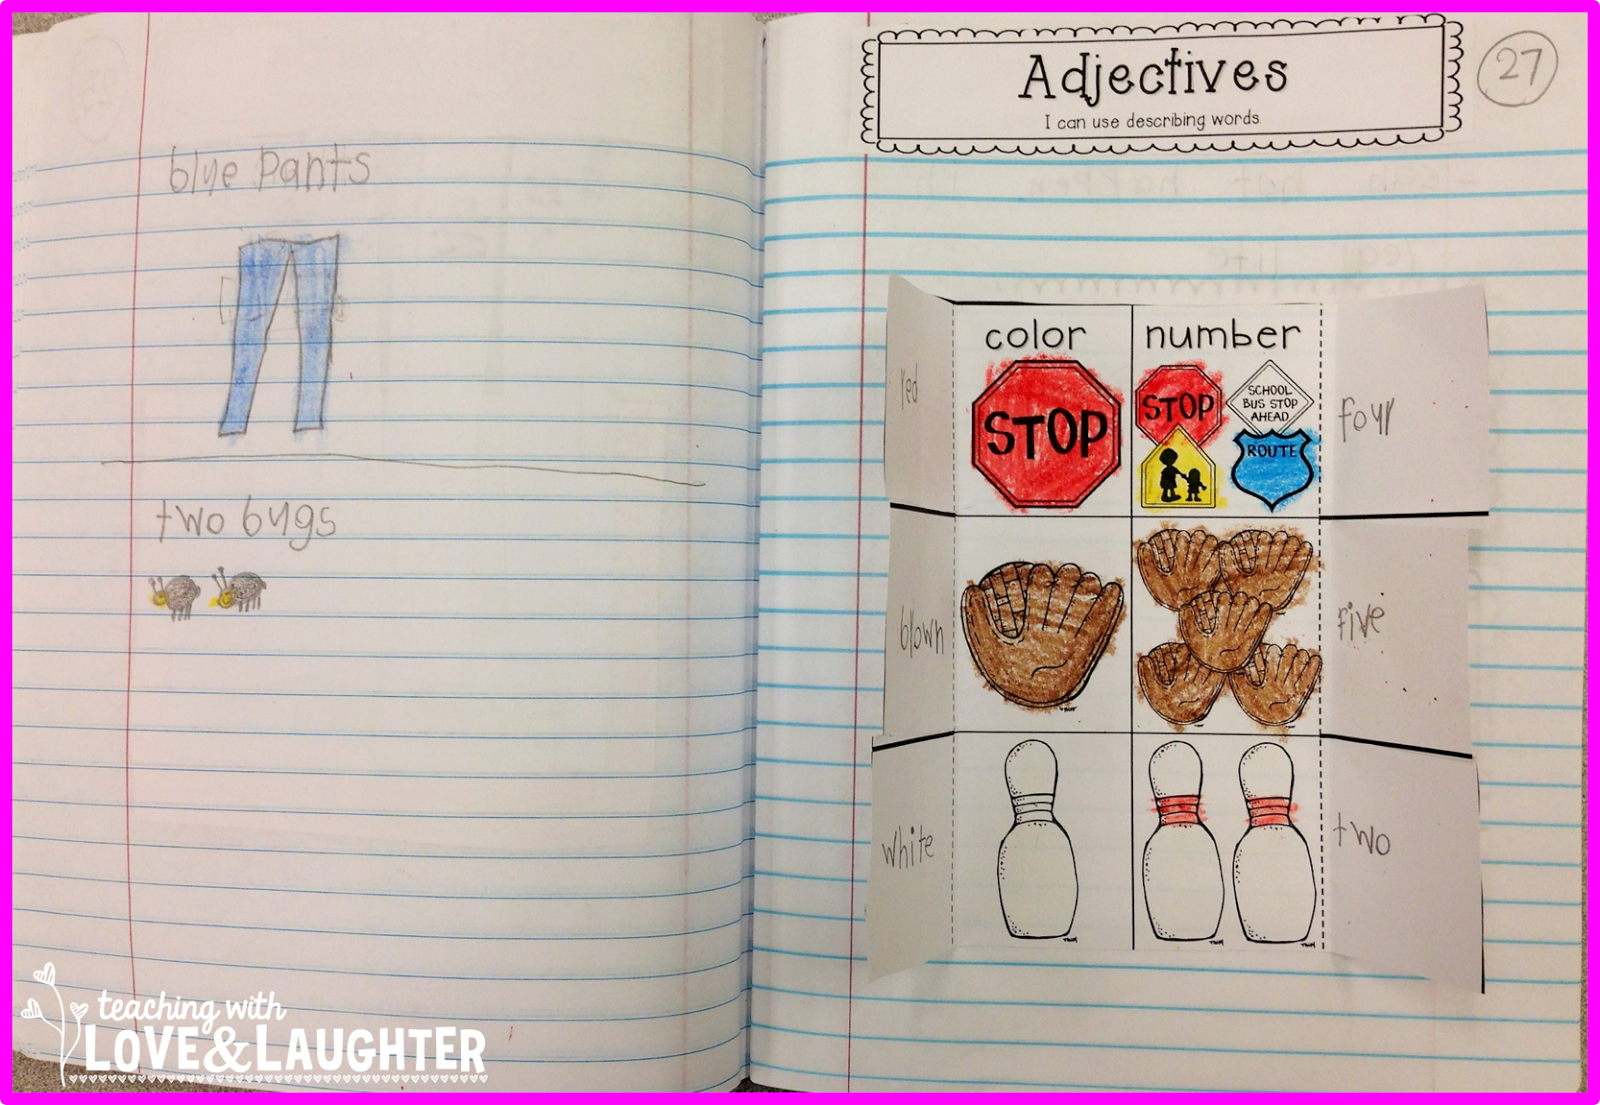 blue pants
two bugs
teaching with
LOVE&LAUGHTER
Adjectives
I can use describing words.
27
color
number
red
STOP
STOP
SCHOOL
BUS STOP
AHEAD
ROUTE
four
brown
five
white
two